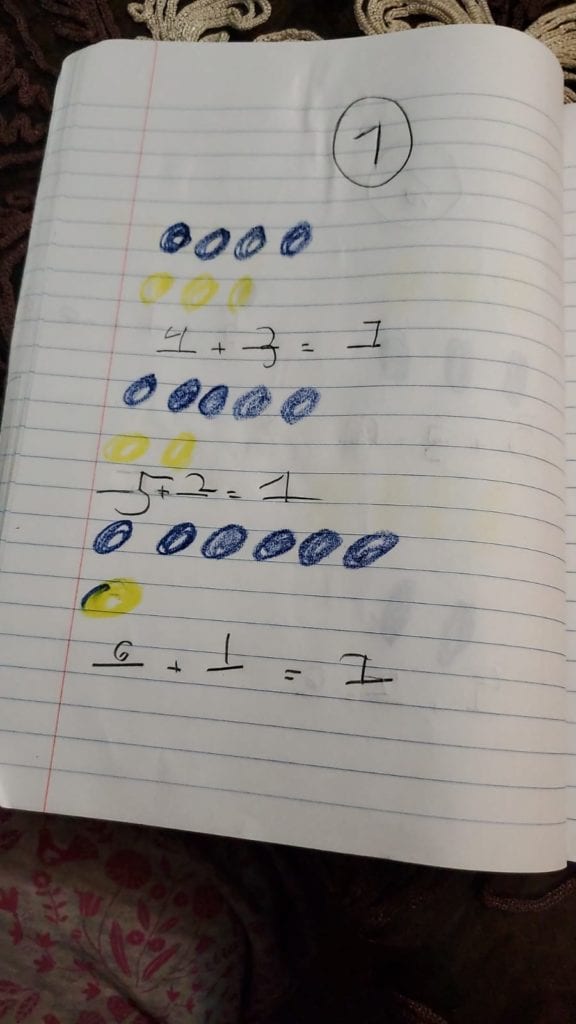 7
4 + 3 = 7
5 + 2 = 7
6 + 1 = 7